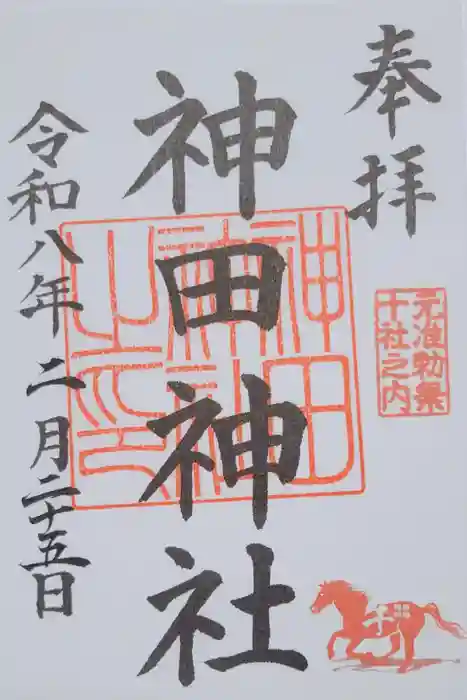 奉拝
元准勅祭
十社之内
神田神社
神田
神社
之印
令和八年 二月二十五日